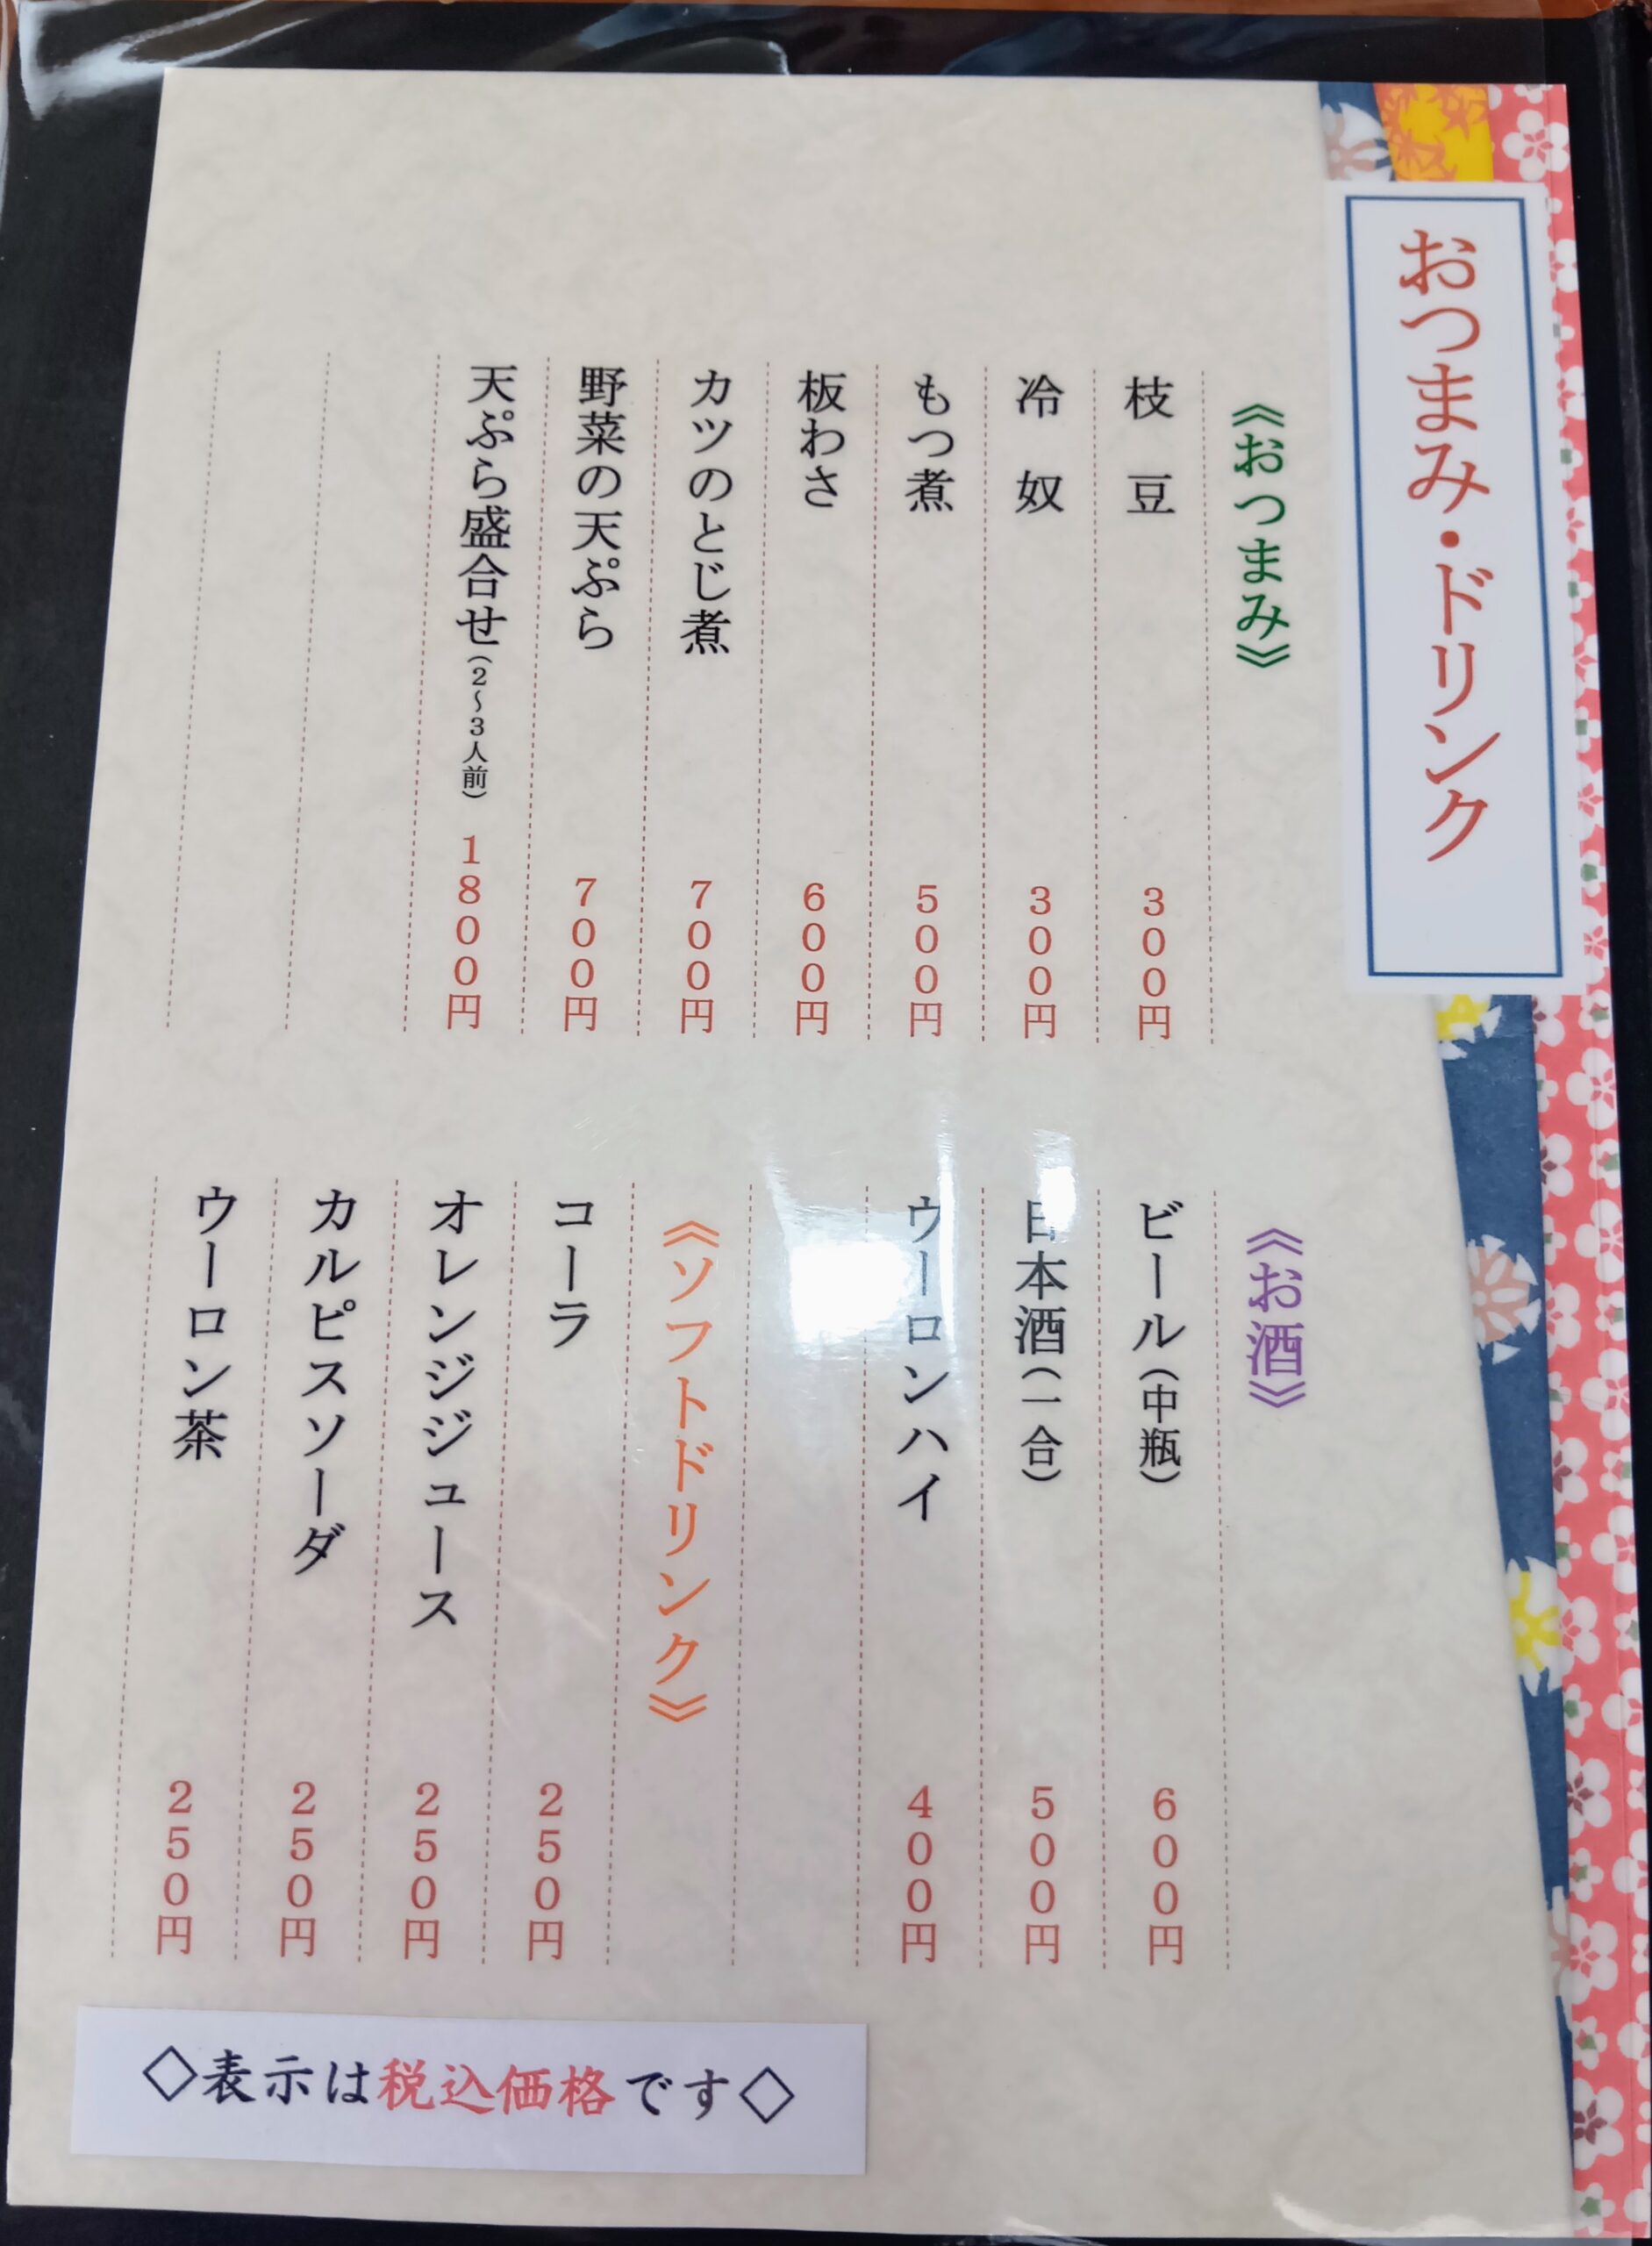 おつまみ・ドリンク
《おつまみ》
枝豆 300円
冷奴 300円
もつ煮 500円
板わさ 600円
カツのとじ煮 700円
野菜の天ぷら 700円
天ぷら盛合せ(2〜3人前) 1800円
《お酒》
ビール(中瓶) 600円
日本酒(一合) 500円
ウーロンハイ 400円
《ソフトドリンク》
コーラ 250円
オレンジジュース 250円
カルピスソーダ 250円
ウーロン茶 250円
◇表示は税込価格です◇